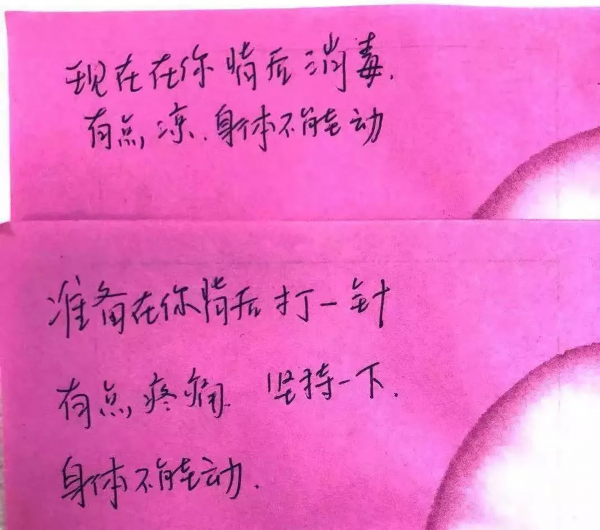 现在在你背后消毒.
有点凉.身体不能动
准备在你背后打一针
有点疼痛 坚持一下.
身体不能动.